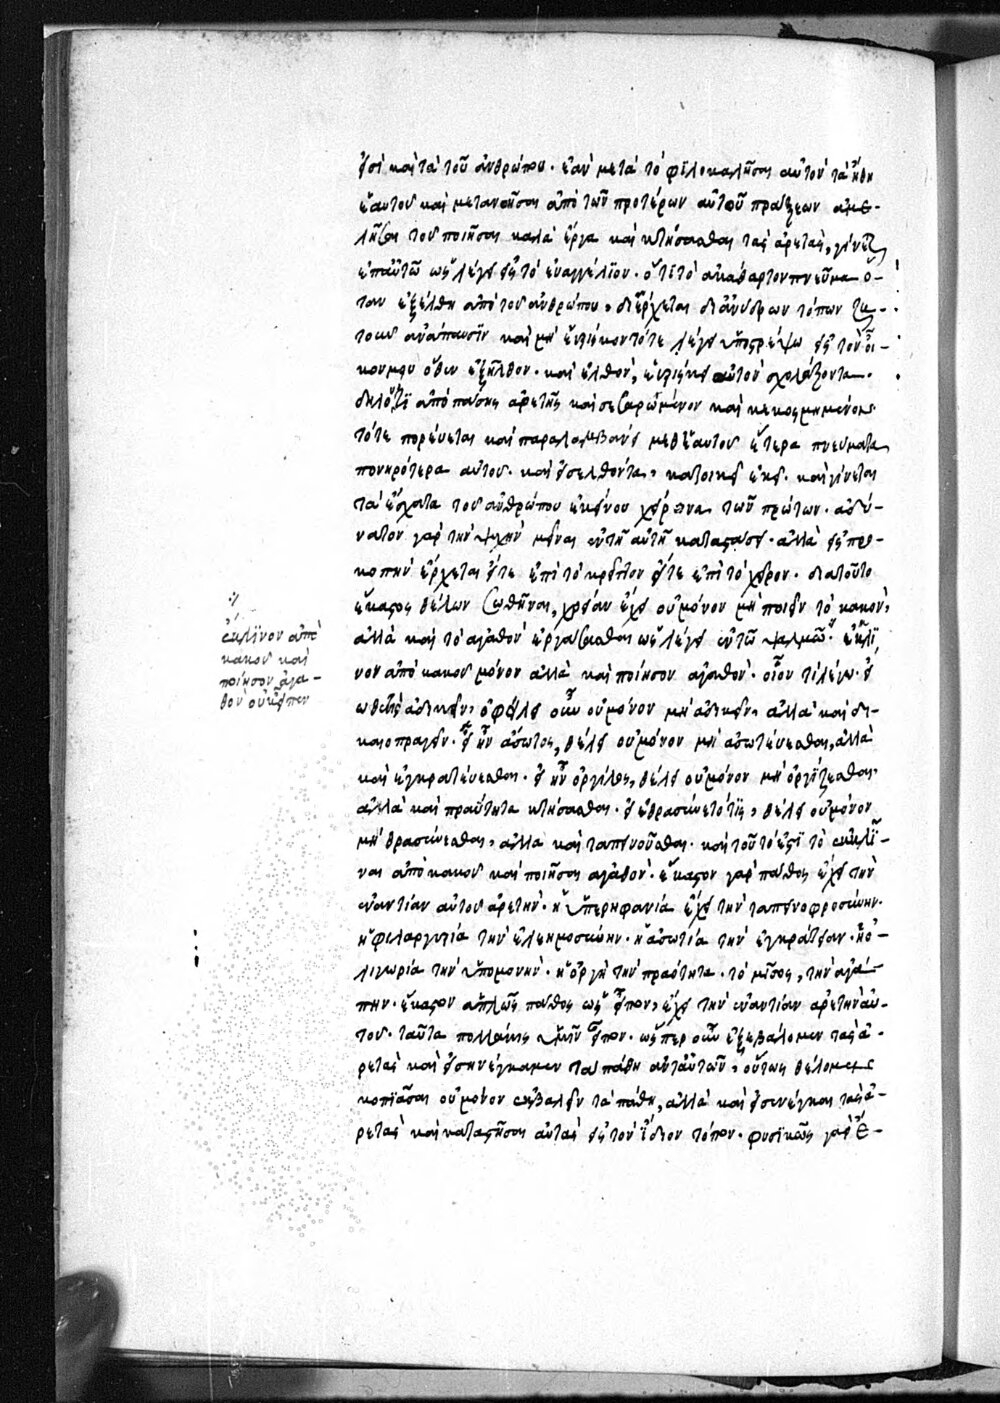 εἰσὶ καὶ τὰ τοῦ ἀνθρώπου· ἐὰν μετὰ τὸ φιλοκαλῆσαι αὐτὸν τὰ ἤθη
ἑαυτοῦ καὶ μετανοῆσαι ἀπὸ τῶν προτέρων αὐτοῦ πράξεων ἀμε-
λῆσαι τοῦ ποιῆσαι καλὰ ἔργα καὶ κτήσασθαι τὰς ἀρετάς, γίνεται
ἐπ' αὐτῷ ὡς λέγει εἰς τὸ εὐαγγέλιον· ὅτι τὸ ἀκάθαρτον πνεῦμα ὅ-
ταν ἐξέλθη ἀπὸ τοῦ ἀνθρώπου, διέρχεται δι ἀνύδρων τόπων ζη-
τοῦν ἀνάπαυσιν καὶ μὴ εὑρίσκον τότε λέγει ὑποστρέψω εἰς τὸν οἶ-
κον μου ὅθεν ἐξῆλθον· καὶ ἐλθὸν, εὑρίσκει αὐτὸν σχολάζοντα·
δηλονότι ἀπὸ πάσης ἀρετῆς καὶ σεσαρωμένον καὶ κεκοσμημένον·
τότε πορεύεται καὶ παραλαμβάνει μεθ' ἑαυτοῦ ἕτερα πνεύματα
πονηρότερα αὐτοῦ· καὶ εἰσελθόντα, κατοικεῖ ἐκεῖ· καὶ γίνεται
τὰ ἔσχατα τοῦ ἀνθρώπου ἐκείνου χείρονα τῶν πρώτων· ἀδύ-
νατον γὰρ τὴν ψυχὴν μεῖναι ἐν τῇ αὐτῇ καταστάσει· ἀλλὰ εἰς προ-
κοπὴν ἔρχεται εἴτε ἐπὶ τὸ κρεῖττον εἴτε ἐπὶ τὸ χεῖρον· διατοῦτο
ἕκαστος θέλων σωθῆναι, χρείαν ἔχει οὐ μόνον μὴ ποιεῖν τὸ κακὸν,
ἀλλὰ καὶ τὸ ἀγαθὸν ἐργάζεσθαι ὡς λέγει ἐν τῷ ψαλμῷ· ἔκκλι-
νον ἀπὸ κακοῦ μόνον ἀλλὰ καὶ ποίησον ἀγαθόν· οἷον τί λέγω· εἰ
ἀδικεῖν, ὀφείλει οὖν οὐ μόνον μὴ ἀδικεῖν, ἀλλὰ καὶ δι-
καιοπραγεῖν· εἰ ἦν ἄσωτος, θέλει οὐ μόνον μὴ ἀσωτεύεσθαι, ἀλλὰ
καὶ ἐγκρατεύεσθαι· εἰ ἦν ὀργίλος, θέλει οὐ μόνον μὴ ὀργίζεσθαι·
ἀλλὰ καὶ πραότητα κτήσασθαι· εἰ ἐθρασύνετό τις, θέλει οὐ μόνον
μὴ θρασύνεσθαι, ἀλλὰ καὶ ταπεινοῦσθαι· καὶ τοῦτό ἐστι τὸ ἐκκλῖ-
ναι ἀπὸ κακοῦ καὶ ποιῆσαι ἀγαθόν· ἕκαστον γὰρ πάθος ἔχει τὴν
ἐναντίαν αὐτοῦ ἀρετὴν· ἡ ὑπερηφανία ἔχει τὴν ταπεινοφροσύνην·
ἡ φιλαργυρία τὴν ἐλεημοσύνην· ἡ ἀσωτία τὴν ἐγκράτειαν· ἡ ὀ-
λιγωρία τὴν ὑπομονήν· ἡ ὀργὴ τὴν πραότητα· τὸ μῖσος, τὴν ἀγά-
πην· ἕκαστον ἁπλῶς πάθος ὡς εἶπον, ἔχει τὴν ἐναντίαν ἀρετὴν αὐ-
τοῦ· ταῦτα πολλάκις ὑμῖν εἶπον· ὥσπερ οὖν ἐξεβάλομεν τὰς ἀ-
ρετὰς καὶ εἰσηνέγκαμεν τὰ πάθη ἀντ' αὐτῶν, οὕτως θέλομεν
κοπιᾶσαι οὐ μόνον ἐκβαλεῖν τὰ πάθη, ἀλλὰ καὶ εἰσενέγκαι τὰς ἀ-
ρετὰς καὶ καταστῆσαι αὐτὰς εἰς τὸν ἴδιον τόπον· φυσικῶς γὰρ ἐ-
ἔκκλινον ἀπὸ
κακοῦ καὶ
ποίησον ἀγα-
θὸν οὐκ εἶπεν